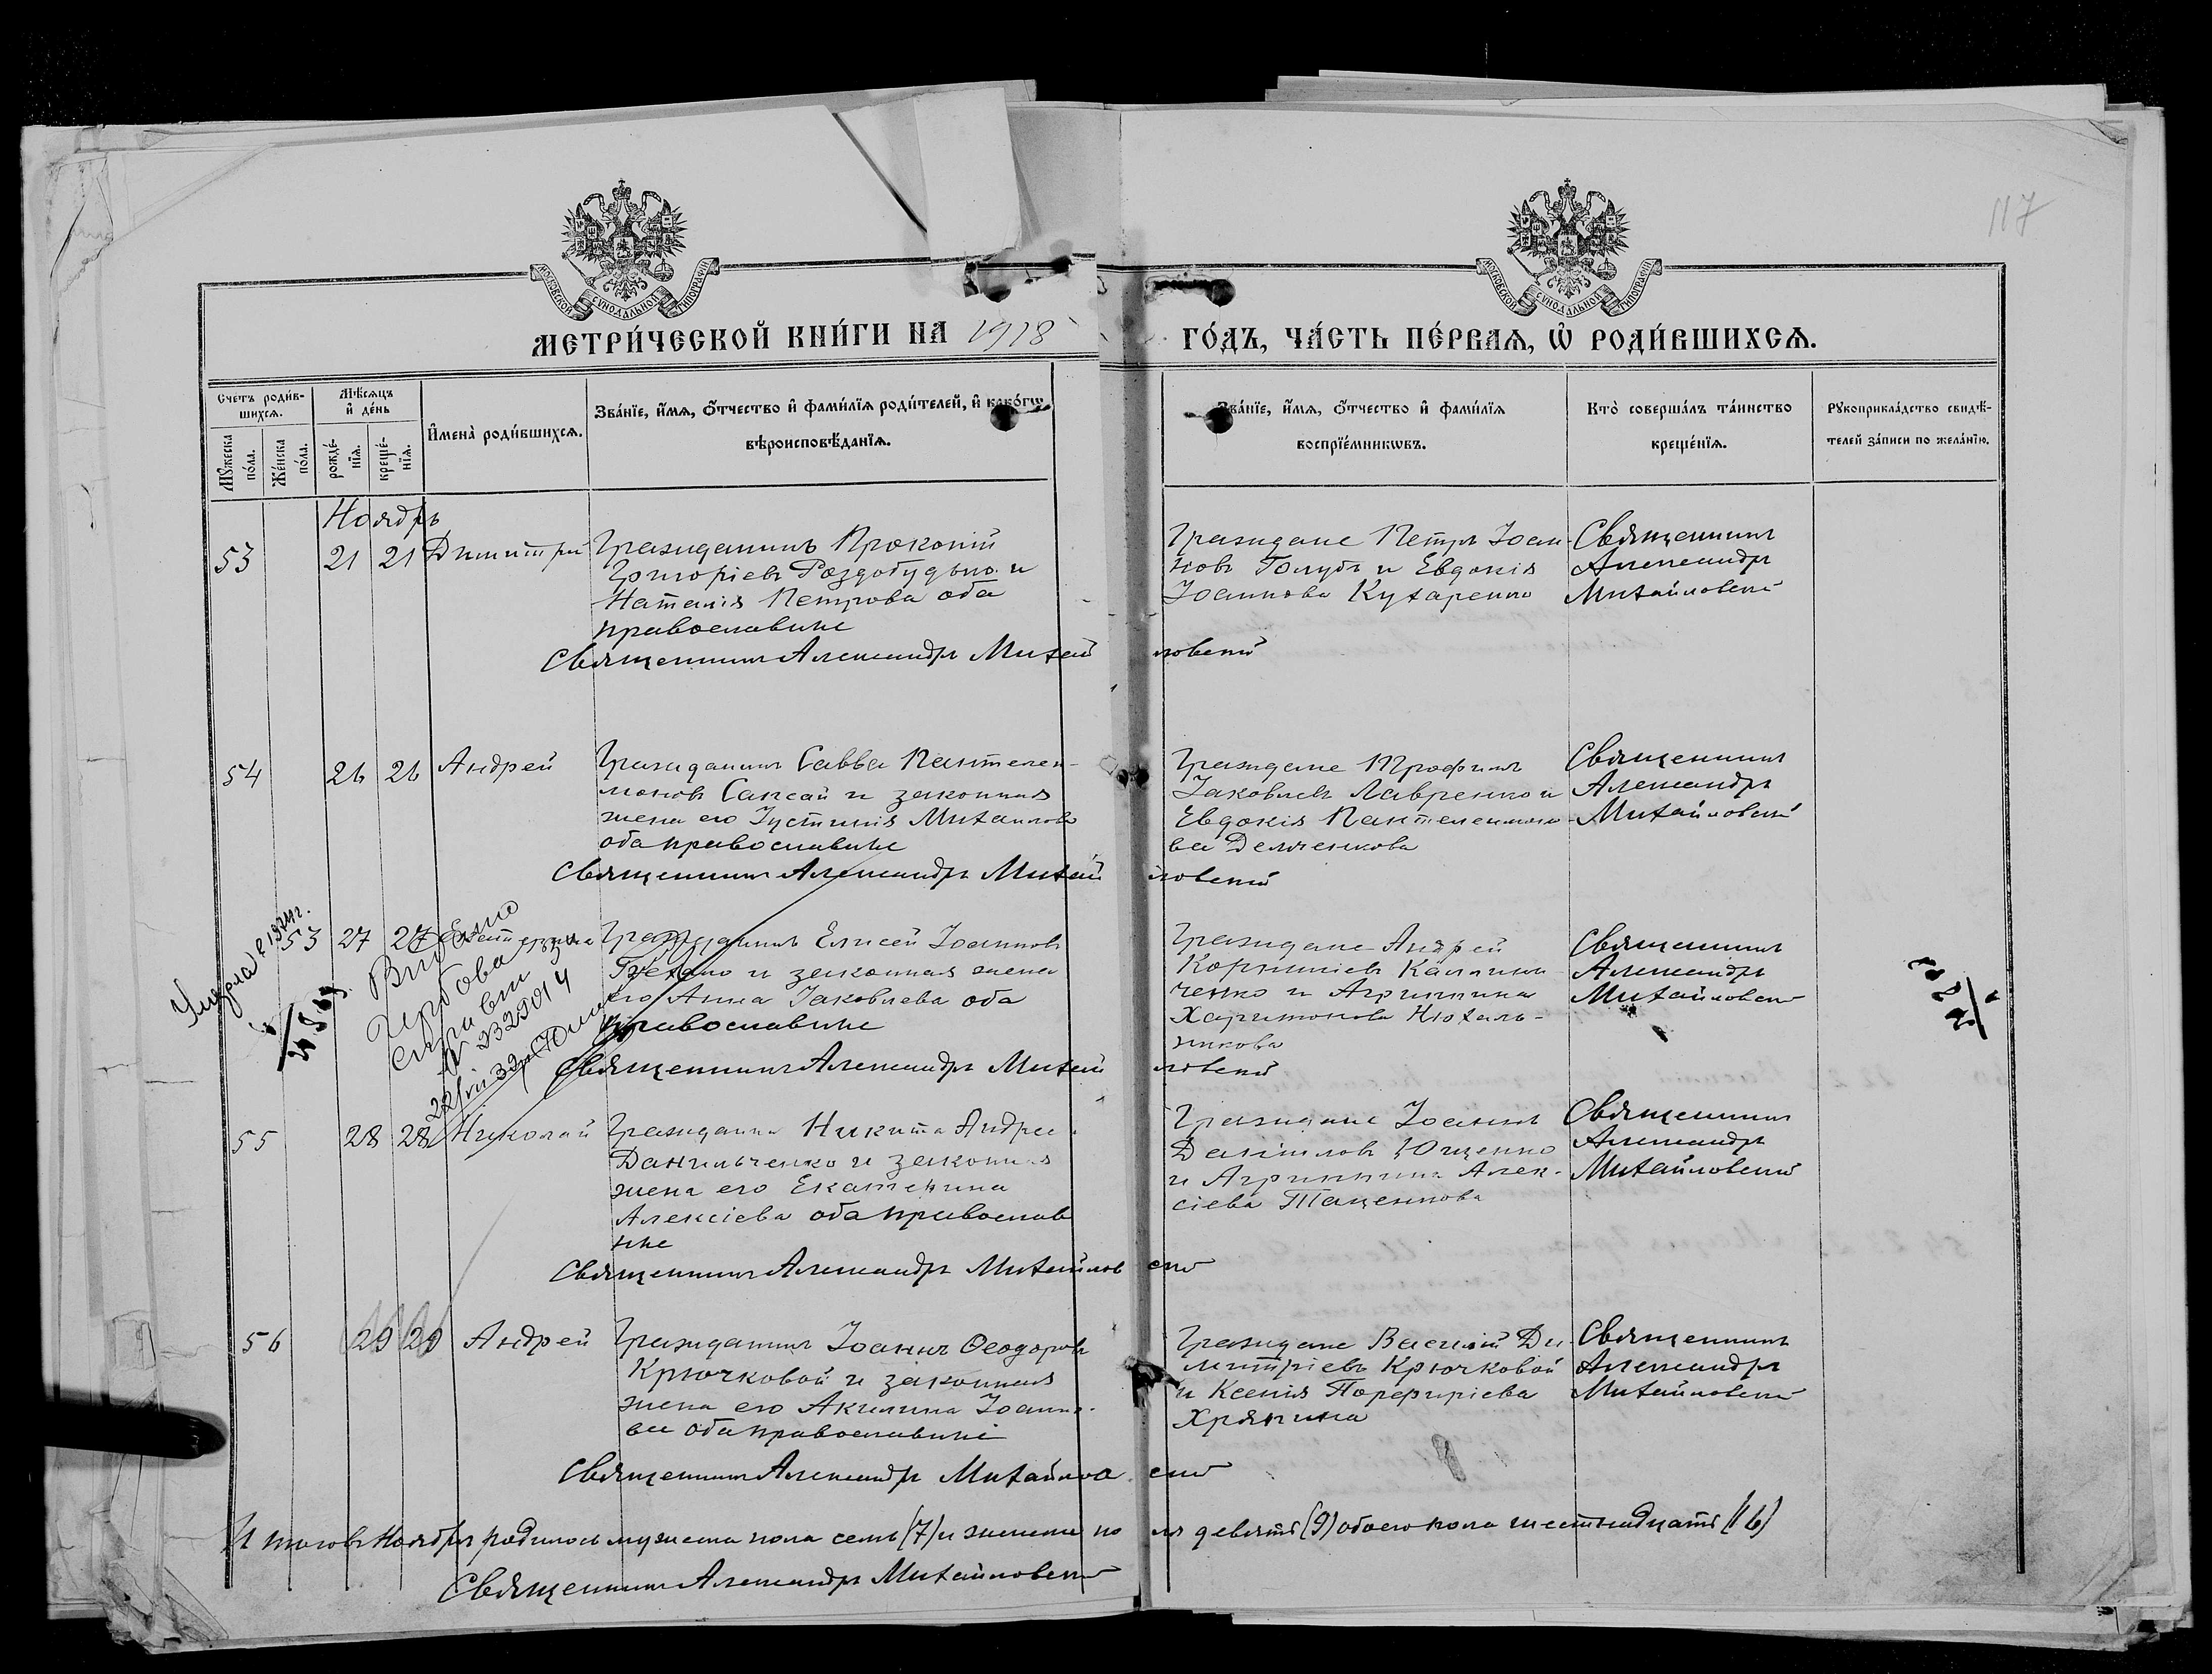 117
МОСКОВСКОЙ СѴНОДАЛЬНОЙ ТИПОГРАФІИ
МОСКОВСКОЙ СѴНОДАЛЬНОЙ ТИПОГРАФІИ
МЕТРИ́ЧЕСКОЙ КНИ́ГИ НА 1918
ГО́ДЪ, ЧА́СТЬ ПЕ́РВАѦ, Ѡ҆ РОДИ́ВШИХСѦ.
Счетъ роди́в-
шихсѧ.
Мꙋжеска по́ла.
Же́нска по́ла.
Мѣ́сѧцъ и҆ де́нь
рожде́-
нїѧ.
креще́-
нїѧ.
И҆мена̀ роди́вшихсѧ.
Зва́нїе, и҆́мѧ, ѻ҆́тчество и҆ фами́лїѧ роди́телей, и҆ како́гѡ
вѣроисповѣ́данїѧ.
Зва́нїе, и҆́мѧ, ѻ҆́тчество и҆ фами́лїѧ
воспрїе́мникѡвъ.
Кто̀ соверша́лъ та́инство
креще́нїѧ.
Рꙋкоприкла́дство свидѣ́-
телей за́писи по жела́нїю.
Ноябрь
53 21 21 Димитрій
Гражданинъ Прокопій
Григоріевъ Роздобудько и
Наталія Петрова оба
православные
Граждане Петръ Іоан-
новъ Голубъ и Евдокія
Іоаннова Кухаренко
Священникъ
Александръ
Михайловскій
Священникъ Александръ Михайловскій
54 26 26 Андрей
Гражданинъ Савва Пантелеи-
моновъ Сапсай и законная
жена его Іустинія Михайлова
оба православные
Граждане Трофимъ
Іаковлевъ Лавренко и
Евдокія Пантелеимоно-
ва Демченкова
Священникъ
Александръ
Михайловскій
Священникъ Александръ Михайловскій
53 27 27 Екатерина
Гражданинъ Елисей Іоанновъ
и законная жена
его Анна Іаковлева оба
православные
Граждане Андрей
Корниліевъ Калини-
ченко и Агриппина
Харитонова
Священникъ
Александръ
Михайловскій
Священникъ Александръ Михайловскій
Умерла 1924 г.
Видано
55 28 28 Николай
Гражданинъ Никита Андреев
Данильченко и законная
жена его Екатерина
Алексіева оба православ
ные
Граждане Іоаннъ
Даніиловъ Ющенко
и Агриппина Алек-
сіева Таценкова
Священникъ
Александръ
Михайловскій
Священникъ Александръ Михайловскій
56 29 29 Андрей
Гражданинъ Іоаннъ Ѳеодоровъ
Крючковой и законная
жена его Акилина Іоанно-
ва оба православные
Граждане Василій Ди-
митріевъ Крючковой
и Ксенія Порфиріева
Хрянина
Священникъ
Александръ
Михайловскій
Священникъ Александръ Михайловскій
Итого въ Ноябрѣ родилось мужеска пола семь (7) и женска пола девять (9) обоего пола шестнадцать (16)
Священникъ Александръ Михайловскій